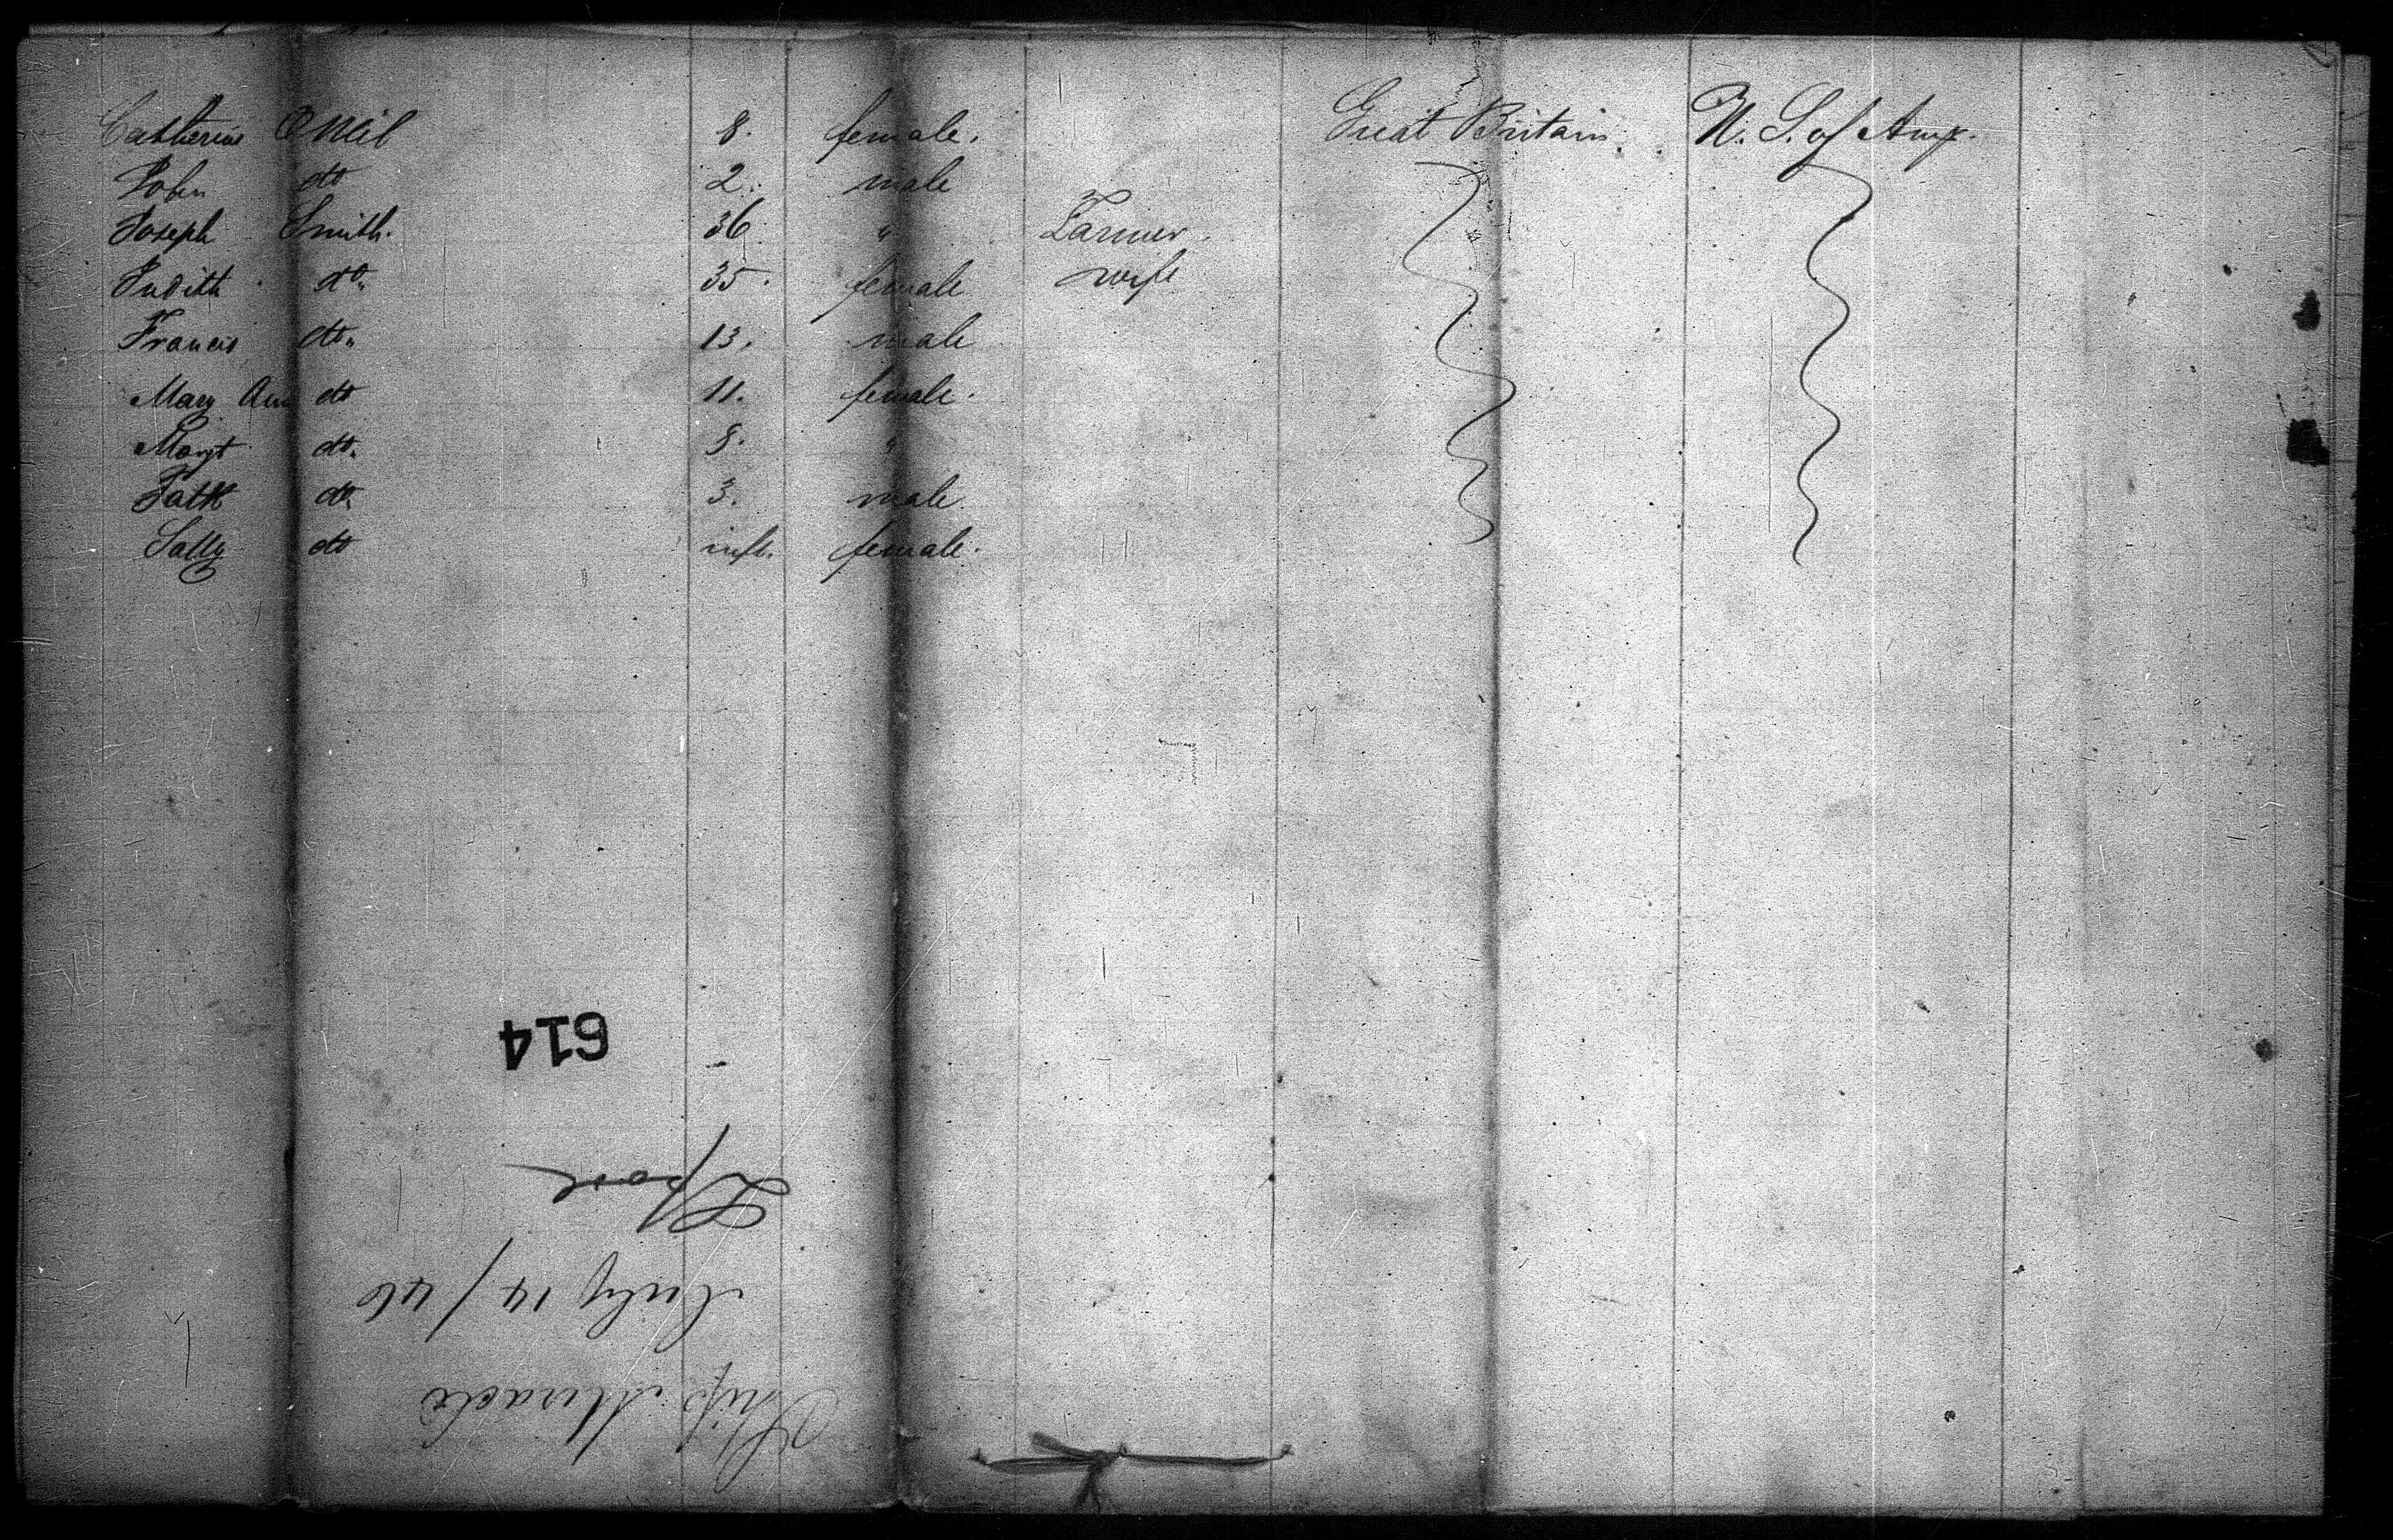 Catherine ONeil 8. female. Great Britain. U. S. of Am
John do 2. male
Joseph Smith. 36. " Farmer.
Judith do. 35. female wife
Francis do. 13. male
Mary Ann do 11. female.
Margt do. 8. "
Patk do. 3. male.
Sally do inft. female.
614
Lpool
July 14/46
Ship Miracle